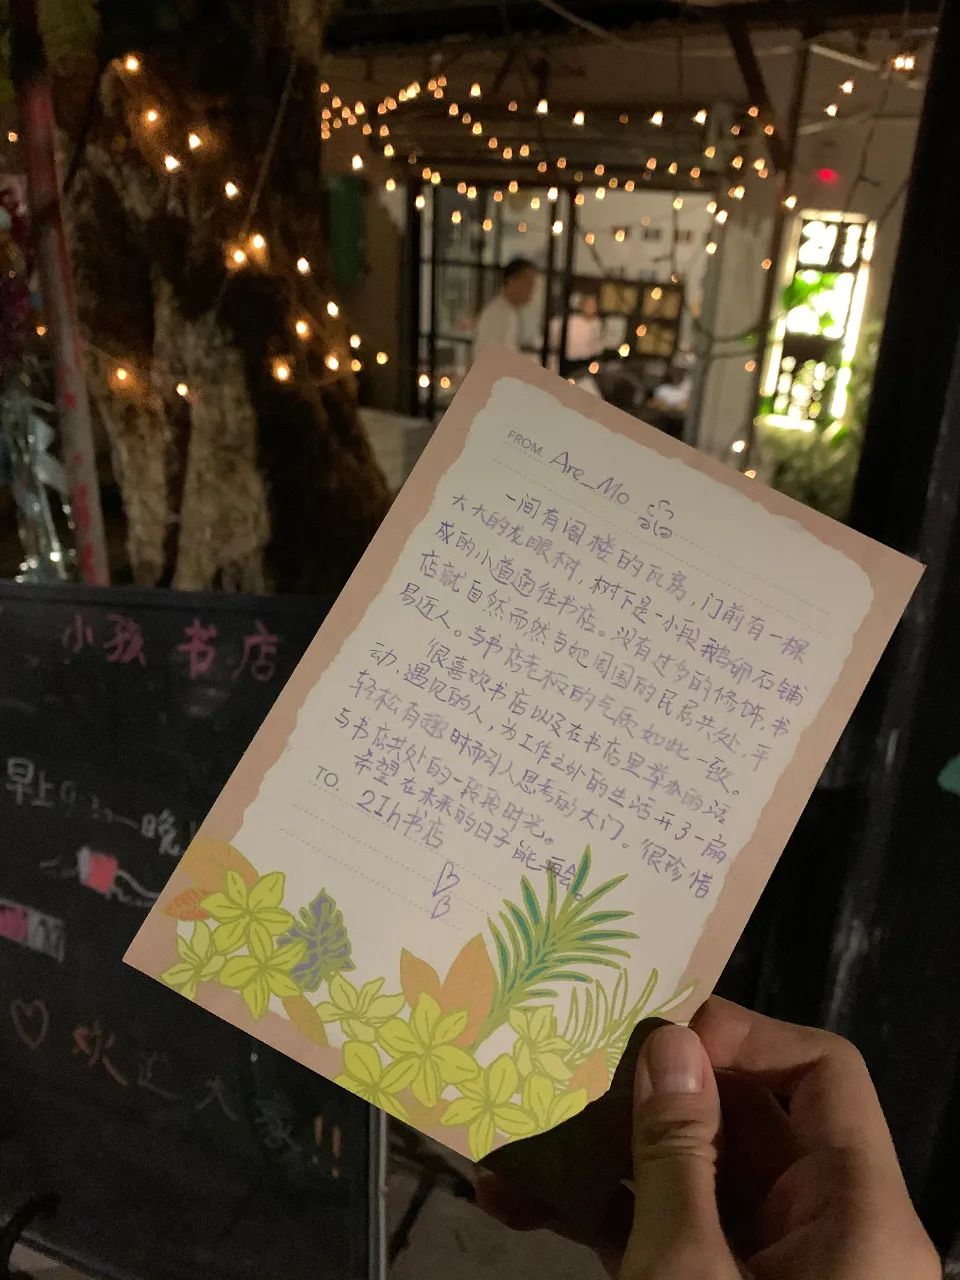 FROM. Are_Mo
一间有阁楼的瓦房,门前有一棵
大大的龙眼树,树下是一小段鹅卵石铺
成的小道通往书店。没有过多的修饰,书
店就自然而然与她周围的民居共处,平
易近人。与书店老板的气质如此一致。
很喜欢书店以及在书店里举办的活
动,遇见的人,为工作之外的生活开了一扇
轻松有趣时而引人思考的大门。很珍惜
与书店共处的一段段时光。
希望在未来的日子能再会。
TO. 21h书店
小孩书店
早上9:30一晚
欢迎大家!!